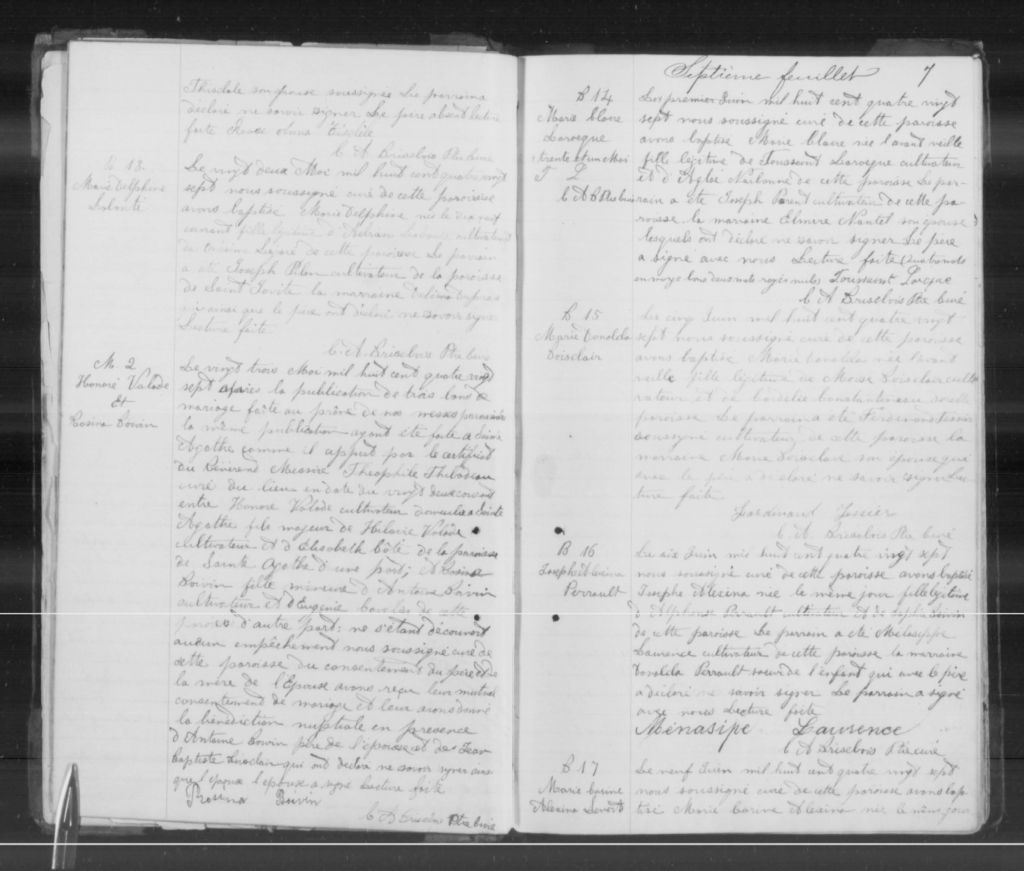 Thisdale son épouse soussignés Le parrain a
déclaré ne savoir signer Le père absent lecture
faite
C A Brisebois Ptre Curé
B 13.
Marie Delphine
Le vingt deux Mai mil huit cent quatre vingt
sept nous soussigné curé de cette paroisse
avons baptisé Marie Delphine née le dix sept
courant fille légitime d'Adrien cultivateur
et de de cette paroisse Le parrain
a été Joseph cultivateur de la paroisse
de Saint Jovite la marraine
qui ainsi que le père ont déclaré ne savoir signer
Lecture faite
C. A. Brisebois Ptre Curé
M. 2
Honoré Valade
Et
Rosina Boivin
Le vingt trois Mai mil huit cent quatre vingt
sept après la publication de trois bans de
mariage faite au prône de nos messes paroissiales
la même publication ayant été faite a Sainte
Agathe comme il appert par le certificat
du Révérend Messire Théophile Thibodeau
curé du lieu en date du vingt deux courant
entre Honoré Valade cultivateur domicilié a Sainte
Agathe fils majeur de Hilaire Valade
cultivateur et d'Elisabeth Côté de la paroisse
de Sainte Agathe d'une part; et Rosina
Boivin fille mineure d'Antoine Boivin
cultivateur et d'Eugénie de cette
paroisse d'autre part: ne s'étant découvert
aucun empêchement nous soussigné curé de
cette paroisse du consentement du père et de
la mère de l'Epouse avons reçu leur mutuel
consentement de mariage et leur avons donné
la bénédiction nuptiale en présence
d'Antoine Boivin père de l'épouse et de Jean
Baptiste qui ont déclaré ne savoir signer ainsi
que l'époux l'épouse a signé Lecture faite
Rosina Boivin
C A Brisebois Ptre Curé
Septième feuillet 7
B 14
Marie Claire
Larocque
trente et un Mai
T L
C A B Ptre Curé
Le premier Juin mil huit cent quatre vingt
sept nous soussigné curé de cette paroisse
avons baptisé Marie Claire née l'avant veille
fille légitime de Toussaint Larocque cultivateur
et d'Aglaé Narbonne de cette paroisse Le par-
rain a été Joseph Parent cultivateur de cette pa-
roisse la marraine Elmire Nantel son épouse
lesquels ont déclaré ne savoir signer Le père
a signé avec nous Lecture faite quatre mots
en marge bons deux mots rayés nuls Toussaint Laroque
C A Brisebois Ptre Curé
B 15
Marie Donalda
Boisclair
Le cinq Juin mil huit cent quatre vingt
sept nous soussigné curé de cette paroisse
avons baptisé Marie Donalda née l'avant
veille fille légitime de Moise Boisclair culti-
vateur et de Constantineau de cette
paroisse Le parrain a été Ferdinand
soussigné cultivateur de cette paroisse la
marraine Marie Boisclair son épouse qui
avec le père a déclaré ne savoir signer Lec-
ture faite
Ferdinand Tessier
C. A. Brisebois Ptre Curé
B 16
Joseph Alexina
Perrault
Le six Juin mil huit cent quatre vingt sept
nous soussigné curé de cette paroisse avons baptisé
Josephe Alexina née le même jour fille légitime
d'Alphonse Perrault cultivateur et de Sophie
de cette paroisse Le parrain a été
Laurence cultivateur de cette paroisse la marraine
Donalda Perrault soeur de l'enfant qui avec le père
a déclaré ne savoir signer Le parrain a signé
avec nous Lecture faite
Ménasipe Laurence
C A Brisebois Ptre curé
B 17
Marie Corine
Alexina
Le neuf Juin mil huit cent quatre vingt sept
nous soussigné curé de cette paroisse avons bap-
tisé Marie Corine Alexina née le même jour